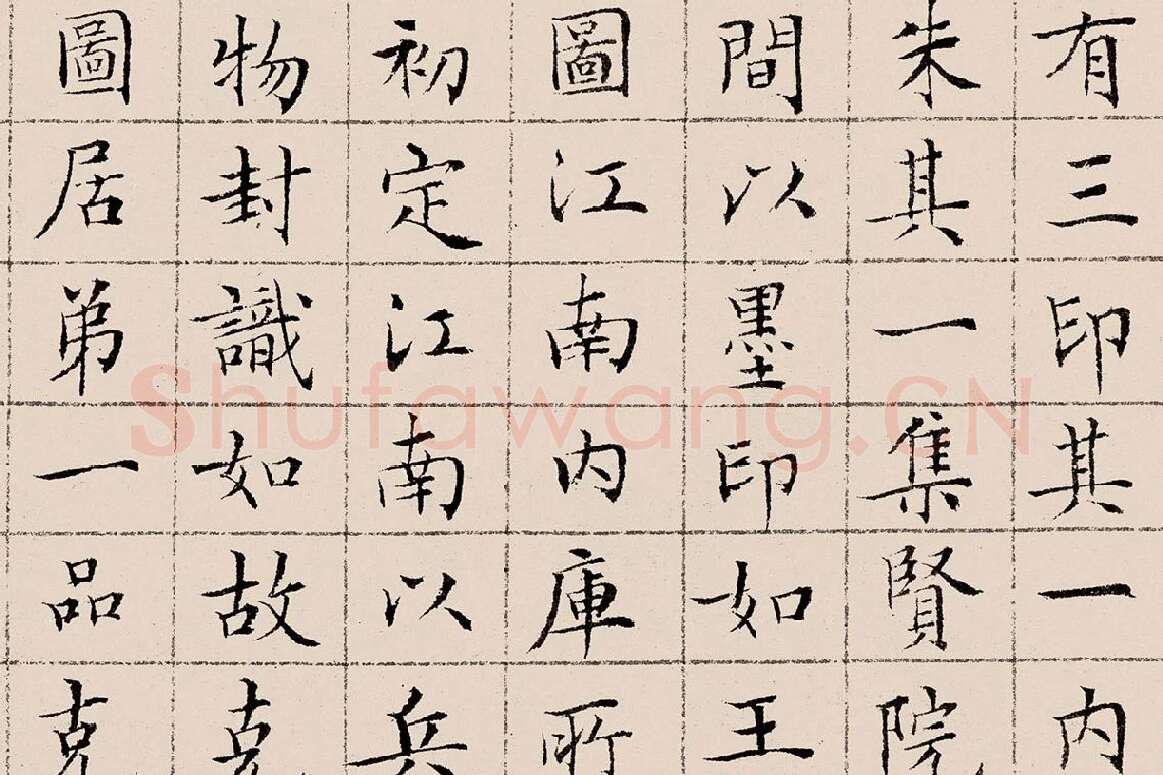 有三印其一内
朱其一集賢院
間以墨印如王
圖江南内庫所
初定江南以兵
物封識如故克
圖居弟一品克
Shufawang.CN